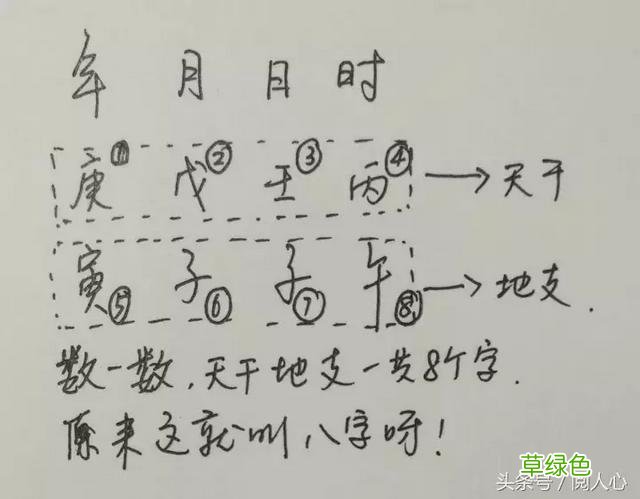 年 月 日 时
庚① 戊② 壬③ 丙④ → 天干
寅⑤ 子⑥ 子⑦ 午⑧ → 地支.
数一数,天干地支一共8个字.
原来这就叫八字呀!
草绿色
头条号/阅人心